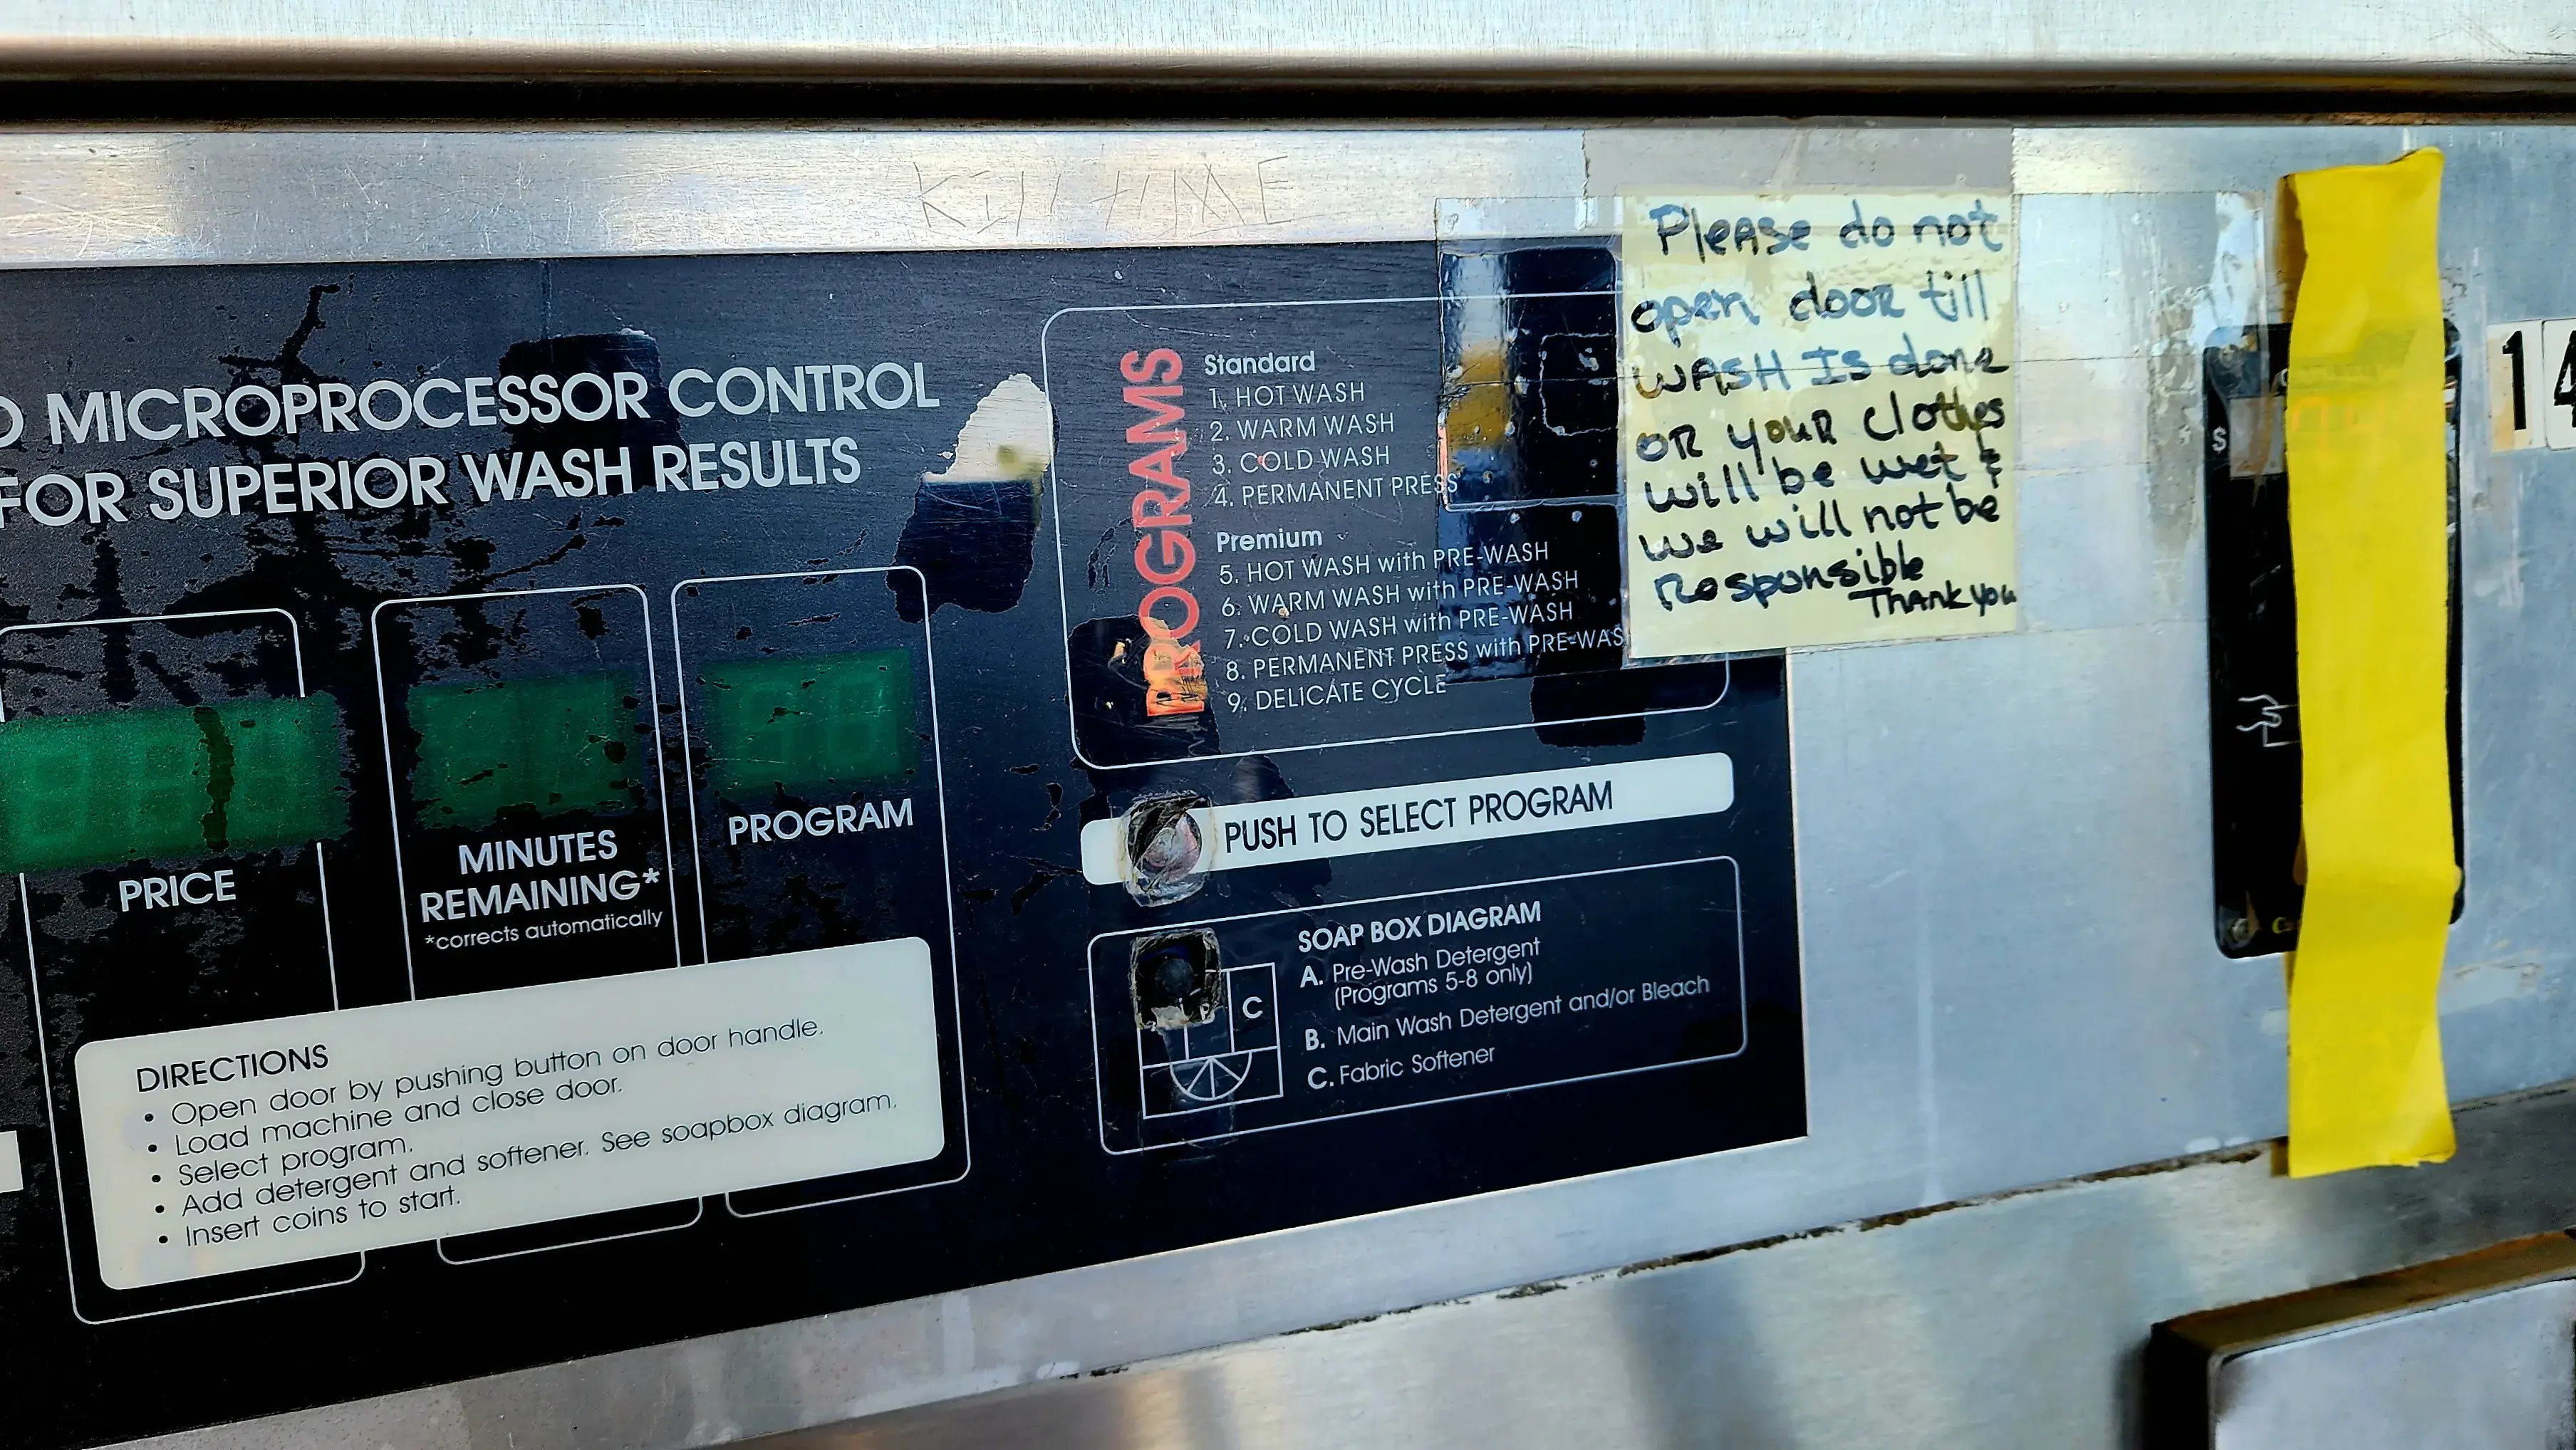 Kill tIME
MICROPROCESSOR CONTROL
FOR SUPERIOR WASH RESULTS
PRICE
MINUTES
REMAINING*
*corrects automatically
PROGRAM
DIRECTIONS
• Open door by pushing button on door handle.
• Load machine and close door.
• Select program.
• Add detergent and softener. See soapbox diagram.
• Insert coins to start.
PROGRAMS
Standard
1. HOT WASH
2. WARM WASH
3. COLD WASH
4. PERMANENT PRESS
Premium
5. HOT WASH with PRE-WASH
6. WARM WASH with PRE-WASH
7. COLD WASH with PRE-WASH
8. PERMANENT PRESS with PRE-WAS
9. DELICATE CYCLE
PUSH TO SELECT PROGRAM
SOAP BOX DIAGRAM
A. Pre-Wash Detergent
(Programs 5-8 only)
B. Main Wash Detergent and/or Bleach
C. Fabric Softener
C
Please do not
open door till
WASH IS done
OR your clothes
will be wet &
we will not be
Responsible
Thank you
$
14